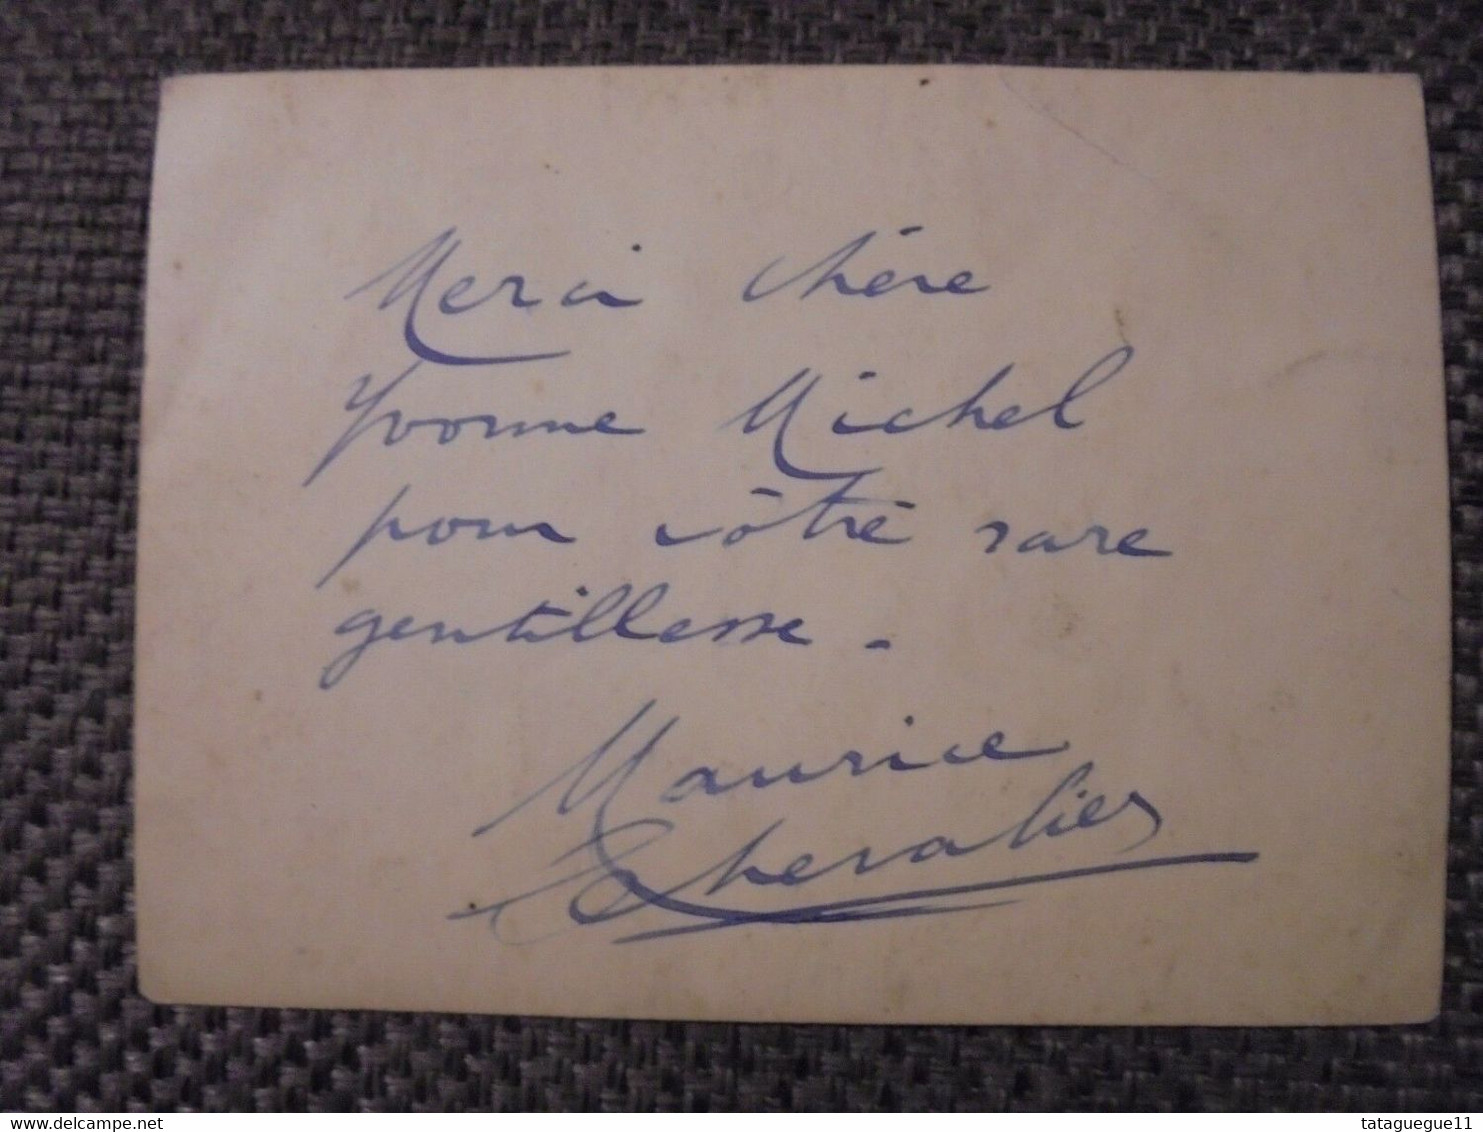 Merci chère
Yvonne Michel
pour vôtre rare
gentillesse.
Maurice
Chevalier
delcampe.net
tataguegue11